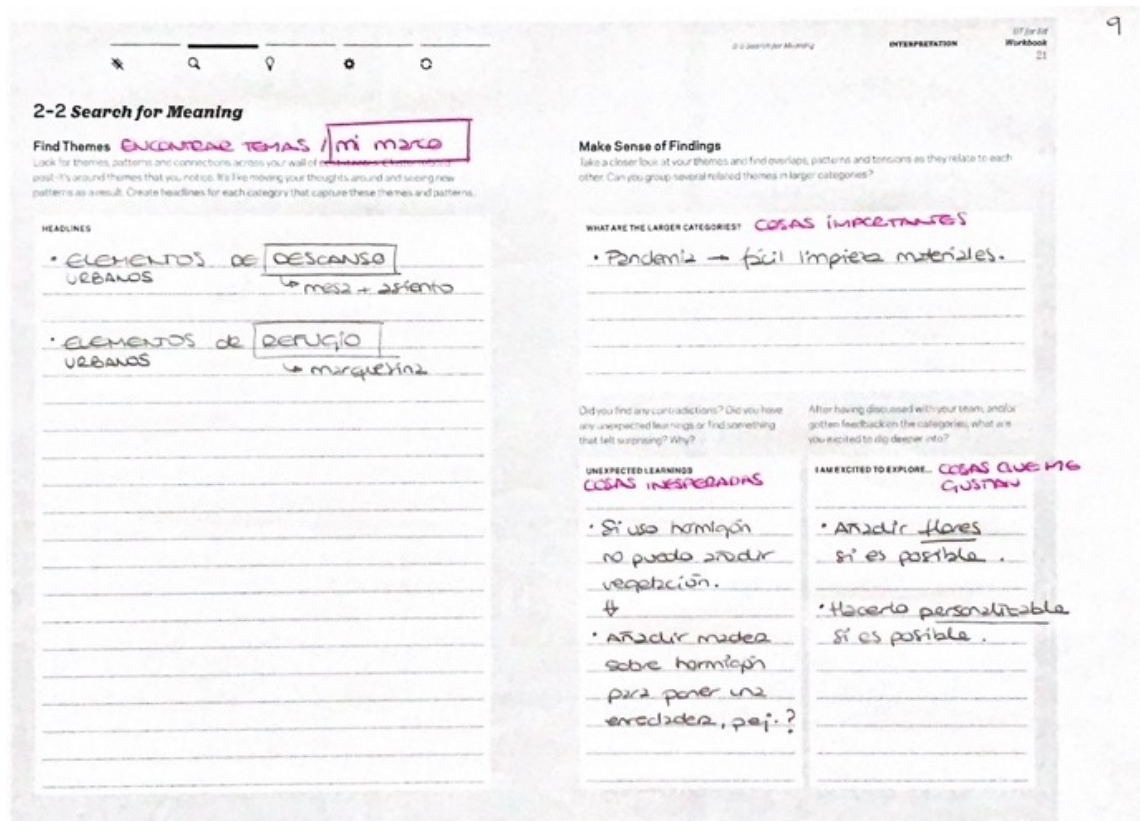 9
2-2 Search for Meaning
INTERPRETATION
Workbook
21
2-2 Search for Meaning
Find Themes ENCONTRAR TEMAS / mi marco
Look for themes, patterns and connections across your wall of
post-it's around themes that you notice. It's like moving your thoughts around and seeing new
patterns as a result. Create headlines for each category that capture these themes and patterns.
HEADLINES
• ELEMENTOS DE DESCANSO
URBANOS
↳ mesa + asiento
• ELEMENTOS de REFUGIO
URBANOS
↳ marquesina
Make Sense of Findings
Take a closer look at your themes and find overlaps, patterns and tensions as they relate to each
other. Can you group several related themes in larger categories?
WHAT ARE THE LARGER CATEGORIES? COSAS IMPORTANTES
• Pandemia → fácil limpieza materiales.
Did you find any contradictions? Did you have
any unexpected learnings or find something
that felt surprising? Why?
UNEXPECTED LEARNINGS
COSAS INESPERADAS
• Si uso hormigón
no puedo añadir
vegetación.
⇓
• Añadir madera
sobre hormigón
para poner una
enredadera, p.ej.?
After having discussed with your team, and/or
gotten feedback on the categories, what are
you excited to dig deeper into?
I AM EXCITED TO EXPLORE... COSAS QUE ME
GUSTAN
• Añadir flores
si es posible.
• Hacerlo personalizable
si es posible.